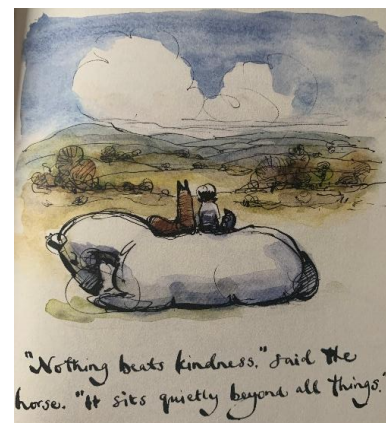 "Nothing beats kindness," said the
horse. "It sits quietly beyond all things."